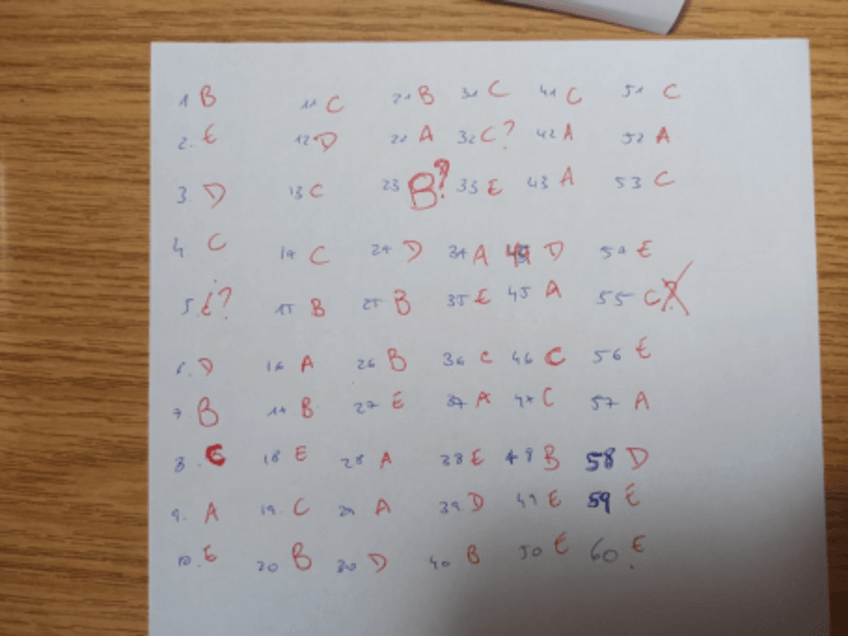 1 B 11 C 21 B 31 C 41 C 51 C
2. E 12 D 22 A 32 C? 42 A 52 A
3 D 13 C 23 B? 33 E 43 A 53 C
4 C 14 C 24 D 34 A 44 D 54 E
5. E? 15 B 25 B 35 E 45 A 55 C
6. D 16 A 26 B 36 C 46 C 56 E
7 B 17 B 27 E 37 A 47 C 57 A
8. C 18 E 28 A 38 E 48 B 58 D
9. A 19. C 29 A 39 D 49 E 59 E
10. E 20 B 30 D 40 B 50 E 60 E